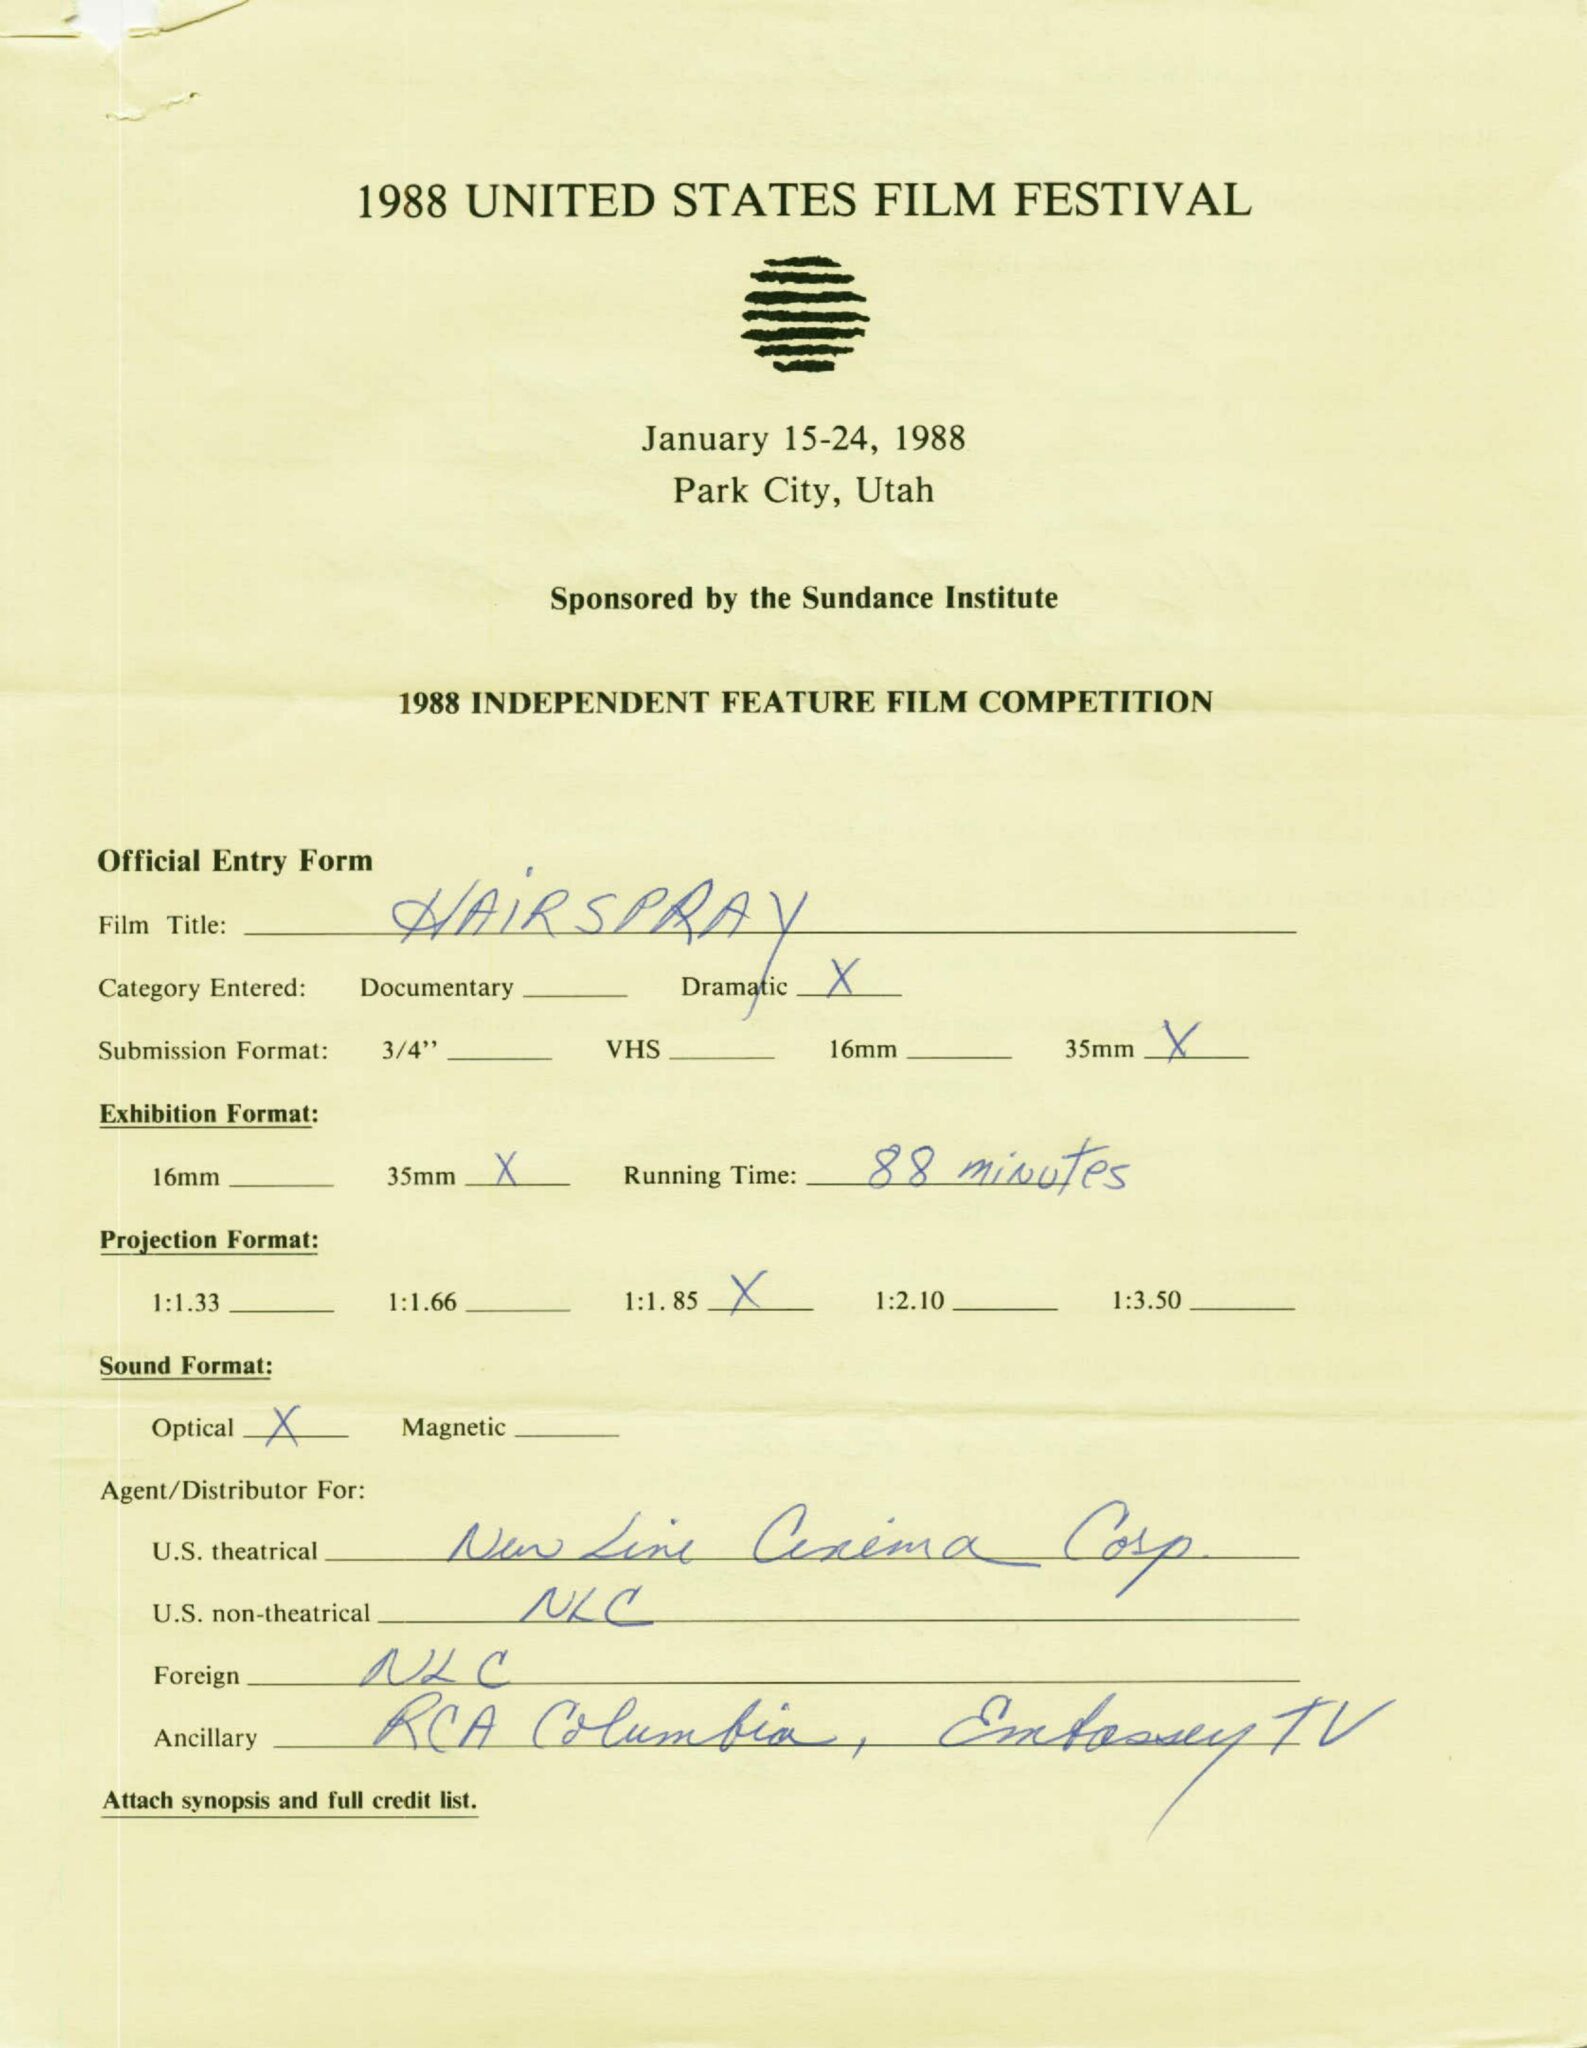 1988 UNITED STATES FILM FESTIVAL
January 15-24, 1988
Park City, Utah
Sponsored by the Sundance Institute
1988 INDEPENDENT FEATURE FILM COMPETITION
Official Entry Form
Film Title: HAIRSPRAY
Category Entered: Documentary ____ Dramatic X
Submission Format: 3/4'' ____ VHS ____ 16mm ____ 35mm X
Exhibition Format:
16mm ____ 35mm X Running Time: 88 minutes
Projection Format:
1:1.33 ____ 1:1.66 ____ 1:1.85 X 1:2.10 ____ 1:3.50 ____
Sound Format:
Optical X Magnetic ____
Agent/Distributor For:
U.S. theatrical New Line Cinema Corp.
U.S. non-theatrical NLC
Foreign NLC
Ancillary RCA Columbia, Embassey TV
Attach synopsis and full credit list.